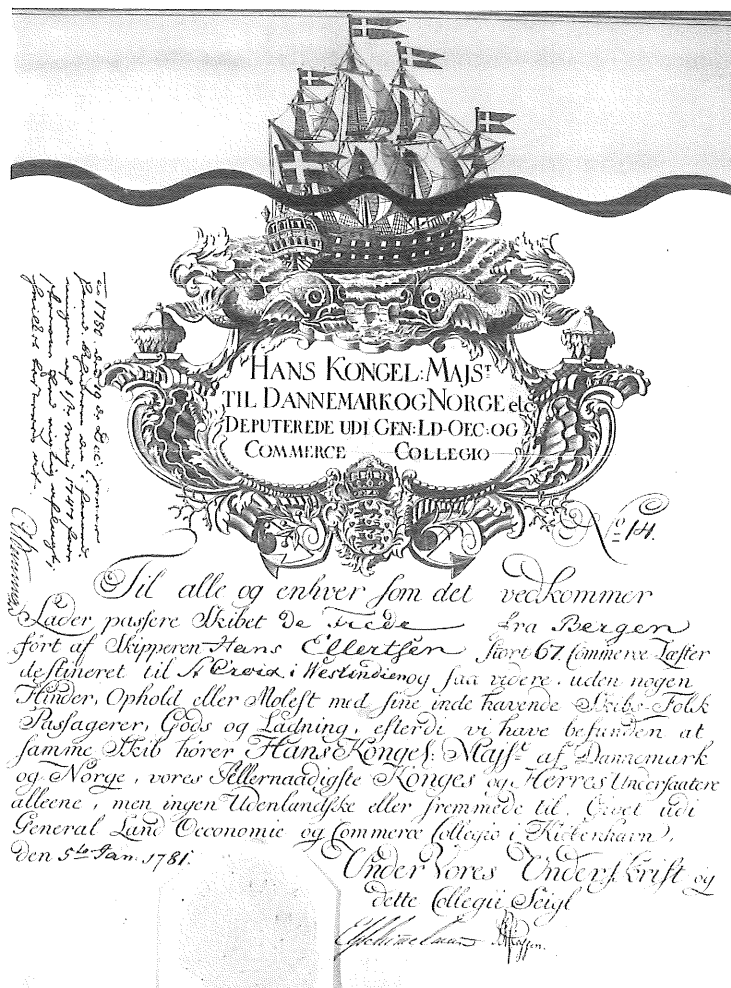 HANS KONGEL: MAJS.T
TIL DANNEMARK OG NORGE etc
DEPUTEREDE UDI GEN: LD-OEC: OG
COMMERCE COLLEGIO
No 14.
Til alle og enhver som det vedkommer
Lader passere Skibet De fra Bergen
ført af Skipperen Hans Ellertsen stort 67 Commerce Læster
destineret til St Croix i Westindien og saa videre, uden nogen
Hinder, Ophold eller Molest med sine inde havende Skibs-Folk
Passagerer, Gods og Ladning, efterdi vi have befunden at
samme Skib hører Hans Konges: Majst af Dannemark
og Norge, vores Allernaadigste Konges og Herres Undersaatere
alleene, men ingen Udenlandske eller fremmede til. Givet udi
General Land Oeconomie og Commerce Collegio i Kiøbenhavn,
den 5te Jan. 1781.
Under Vores Underskrift og
dette Collegii Seigl